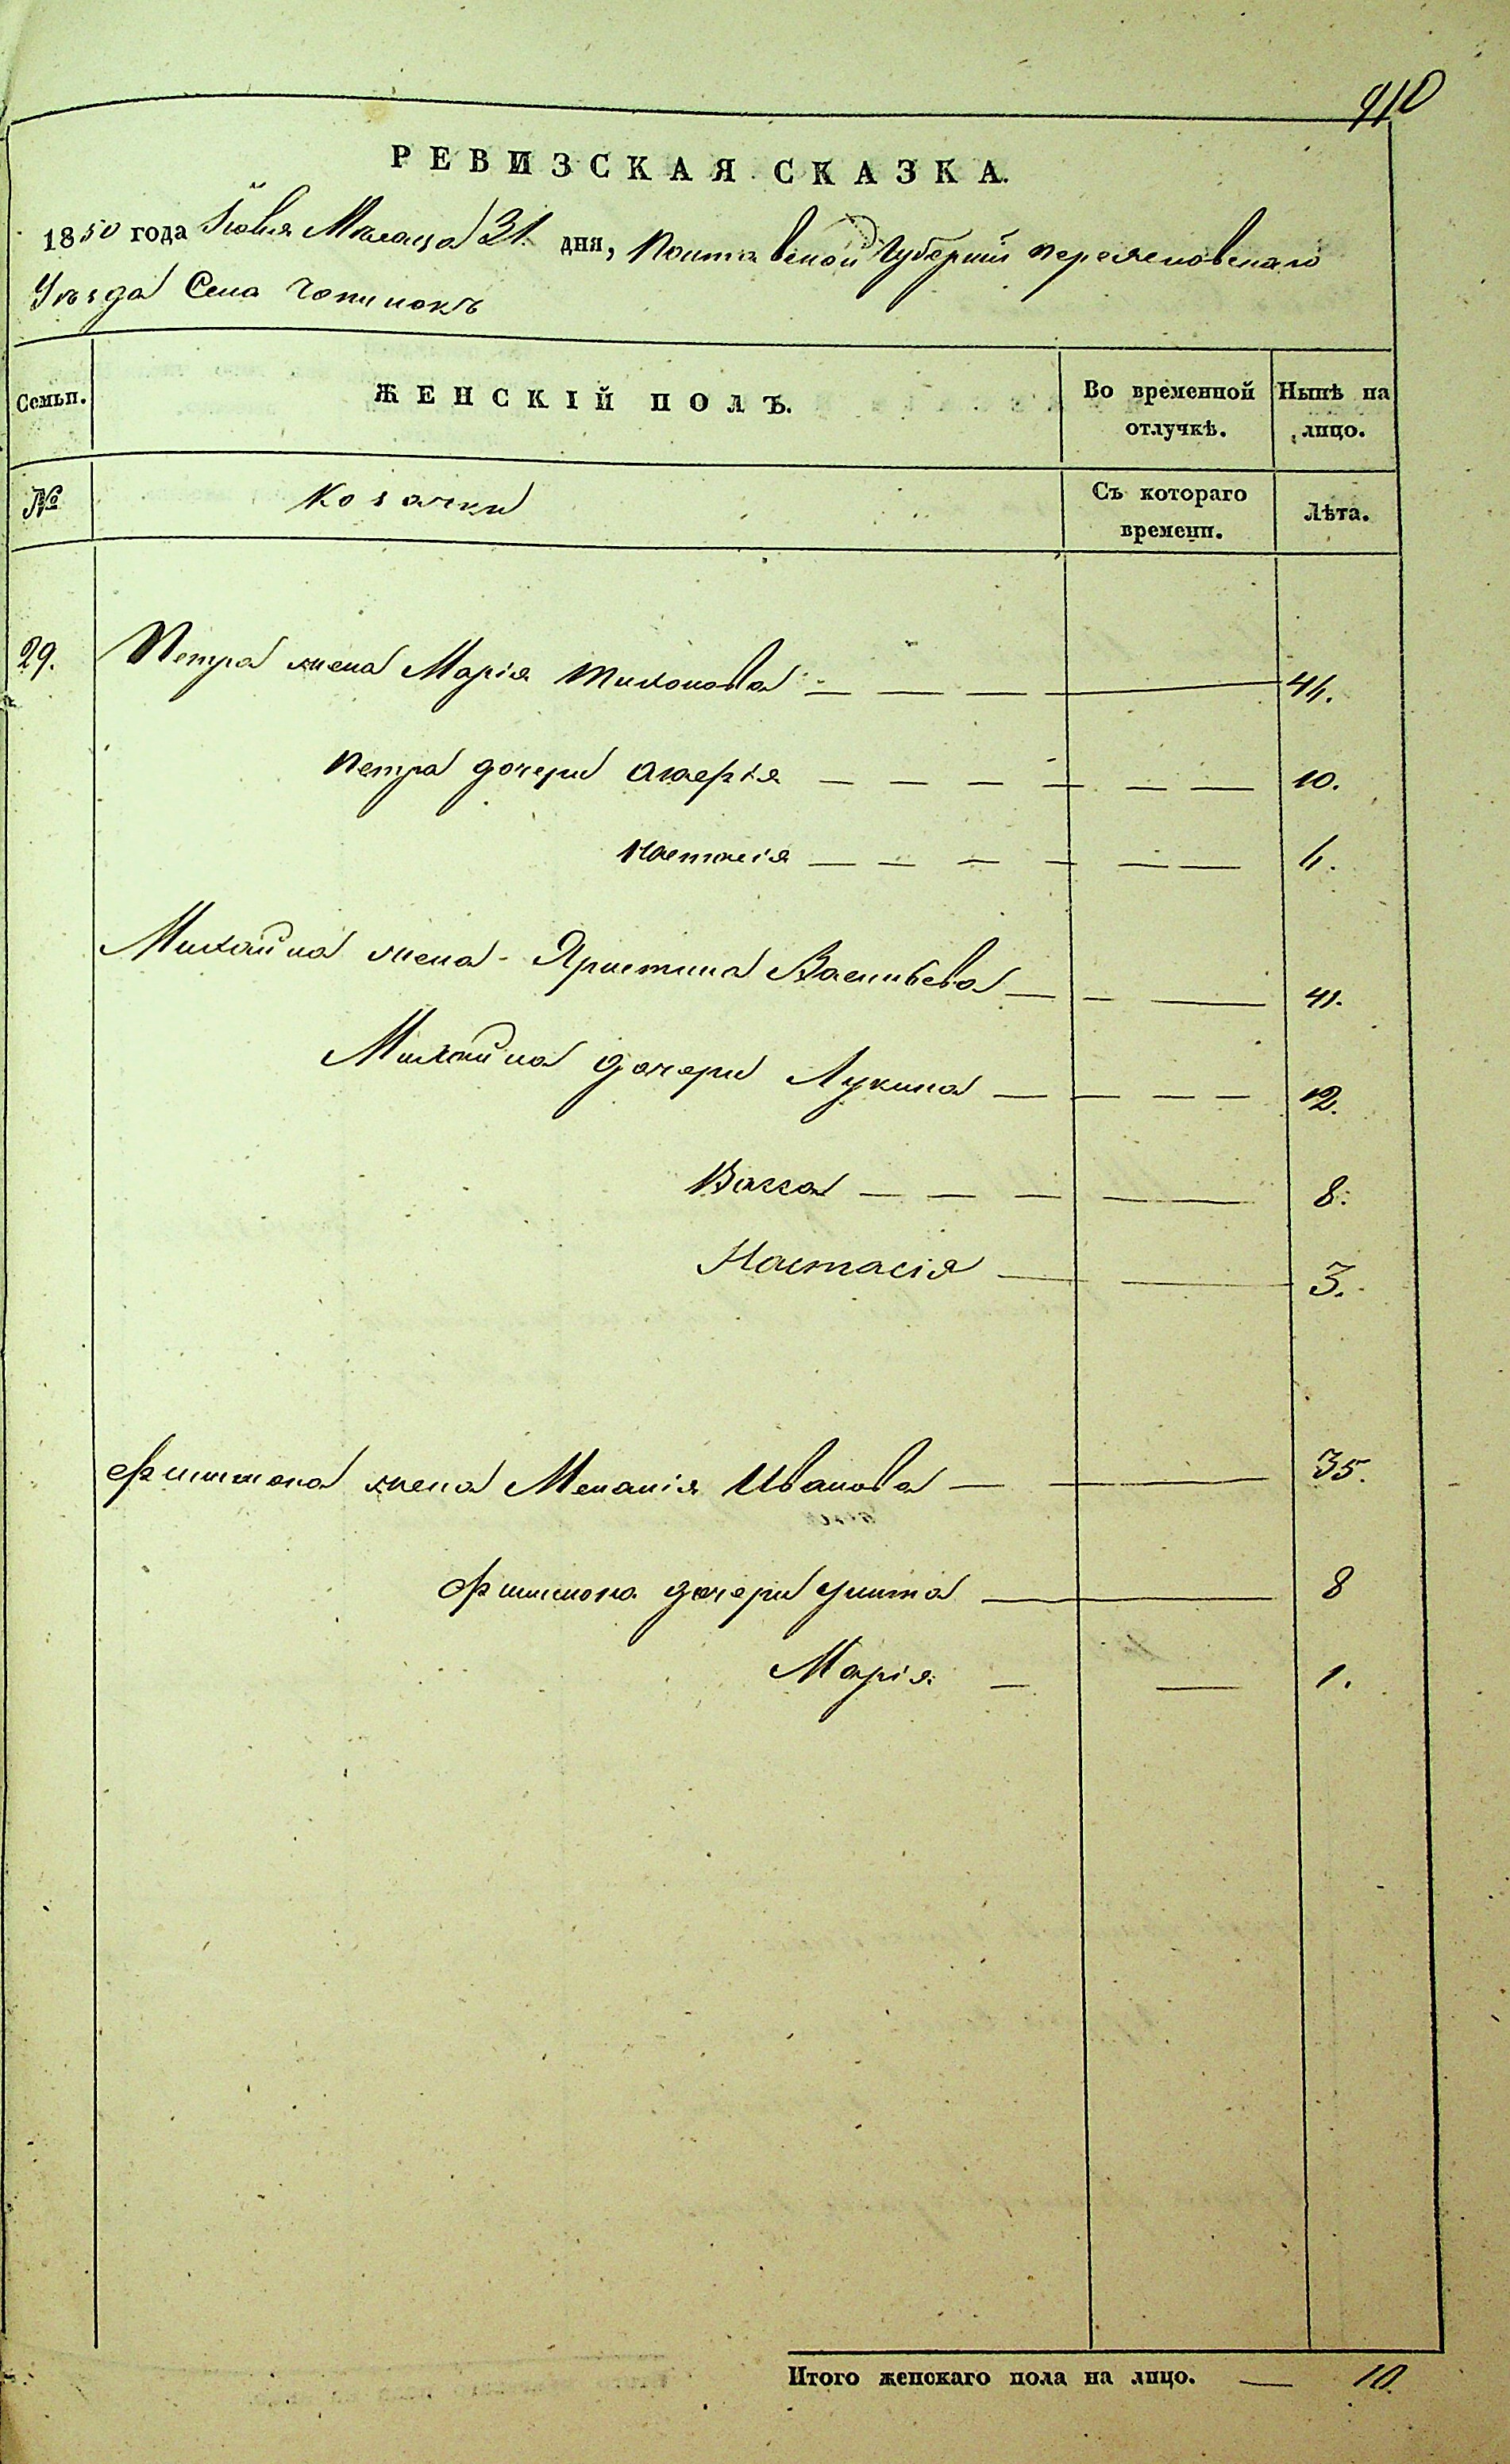 410
РЕВИЗСКАЯ СКАЗКА.
1850 года Іюля Месяца 31. дня, Полтавской Губерніи Переясловскаго
Уѣзда Села Чопилокъ
Семьи. ЖЕНСКІЙ ПОЛЪ. Во временной отлучкѣ. Нынѣ на лицо.
№ Козачки Съ котораго времени. Лѣта.
29. Петра жена Марія Тихонова — — — 44.
Петра дочери — — — — — — 10.
Настасія — — — — — — 4.
Михайла жена Христина Васильева — — — 41.
Михайла дочери Лукина — — — — 12.
Васса — — — — 8.
Настасія — — 3.
Филимона жена Меланія Иванова — — 35.
Филимона дочери Улита — 8
Марія — — 1.
Итого женскаго пола на лицо. — 10.